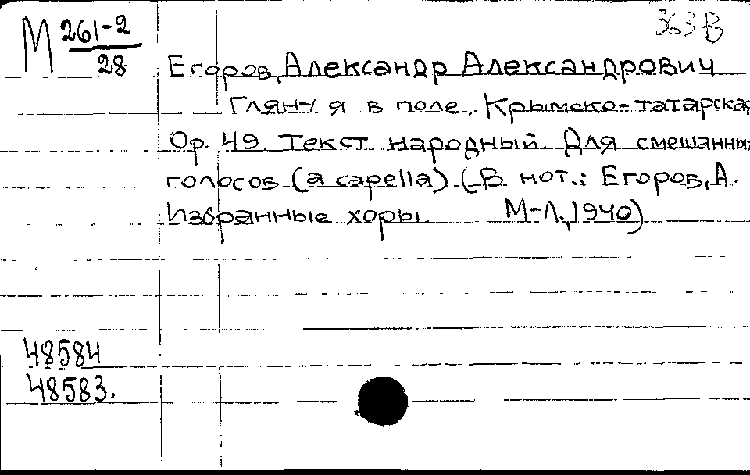 М 261-2
28
363 В
Егоров, Александр Александрович
Гляну я в поле. Крымско-татарская
Op. 49 Текст народный. Для смешанны
голосов (a capella). (В нот.: Егоров, А.
Избранные хоры. М-Л., 1940)
48584
48583.